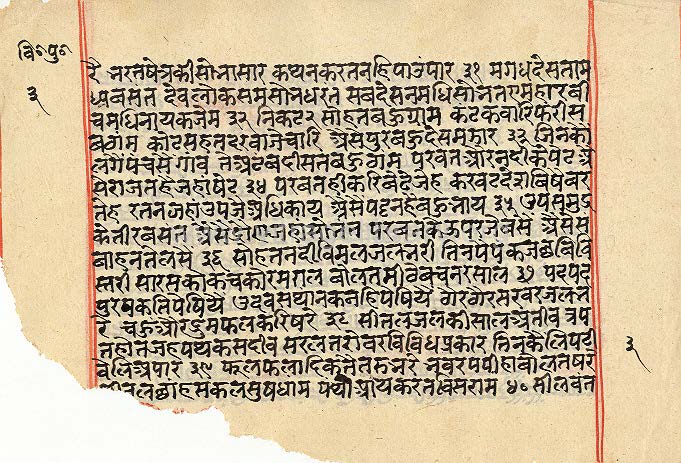 वि॰पु॰
३
रै भरतषेत्रकी सोभासार कथन करत नहि पाउ पार ३१ मगधदेस ताम
ध्य बसंत देवलोकसम सोभ धरत सबदेसनमधि सोभत एम हारबी
चमधिनायक जेम ३२ निकट२ सोहत बहु ग्राम कटक बारि फरी स
बगंम कोटसहत दरवाजे चारि असे पुर बहु देसमझार ३३ जिनकौ
लगे पंचसे गांव ते अटबदी सत बहु गंम परवत और नदी के पेट अ
से राजत हे जहा षेट ३४ परबत ही करि बेढे जेह करवट देश बिषे वर
तेह रतन जहा उपजे अधिकाय असे पट्टन हे बहु भाय ३५ उपसमुद्र
के तीर बसंत असे द्रोण जहा सोभंत परबत के ऊपर जे बसे असे स
बाहन तल से ३६ सोहत नदी विमल जल भरी तिन पंपंकज छबि वि
स्तरी सारस कोक चकोर मराल बोलत मीठे बचन रसाल ३७ पद पद
पुर मुकतिपे पिय उदबसथान क नहि पेषिये गेर गेर सरवर जल भ
रे चहु ओर द्रुम फल करि षरे ३८ सीतल जल की साल अतीव त्रप
त होत जह पथक सदीव सरल तरोवर विविध प्रकार तिनके लिपटी
वेलि अपार ३९ फल फूलादिक ते तरु भरे नूवर पपीहा बोलत षरे
सीतल छांह सकल सुषधाम पंथी आय करत विसराम ४० सीलवंत
३